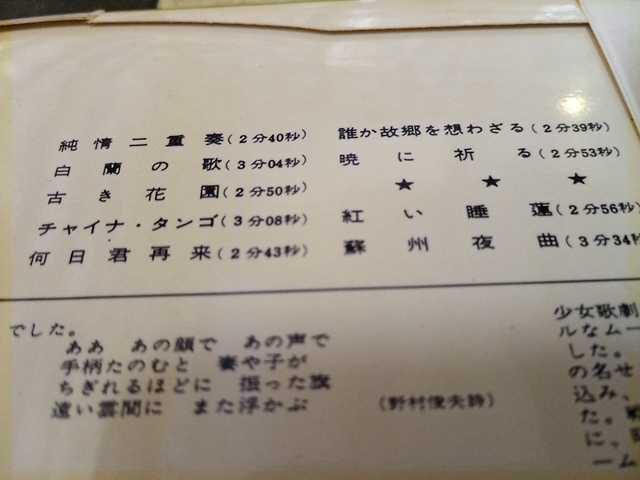 純情二重奏(2分40秒)
白蘭の歌(3分04秒)
古き花園(2分50秒)
チャイナ・タンゴ(3分08秒)
何日君再来(2分43秒)
誰か故郷を想わざる(2分39秒)
暁に祈る(2分53秒)
★ ★ ★
紅い睡蓮(2分56秒)
蘇州夜曲(3分34秒
でした。
ああ あの顔で あの声で
手柄たのむと 妻や子が
ちぎれるほどに 振った旗
遠い雲間に また浮かぶ
(野村俊夫詩)
少女歌劇
ルなムー
した。
の名せ
込み、
た。
に、
ーム